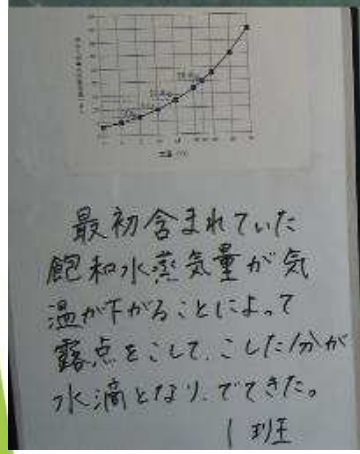 最初含まれていた
飽和水蒸気量が気
温が下がることによって
露点をこして、こした分が
水滴となり、でてきた。
1班